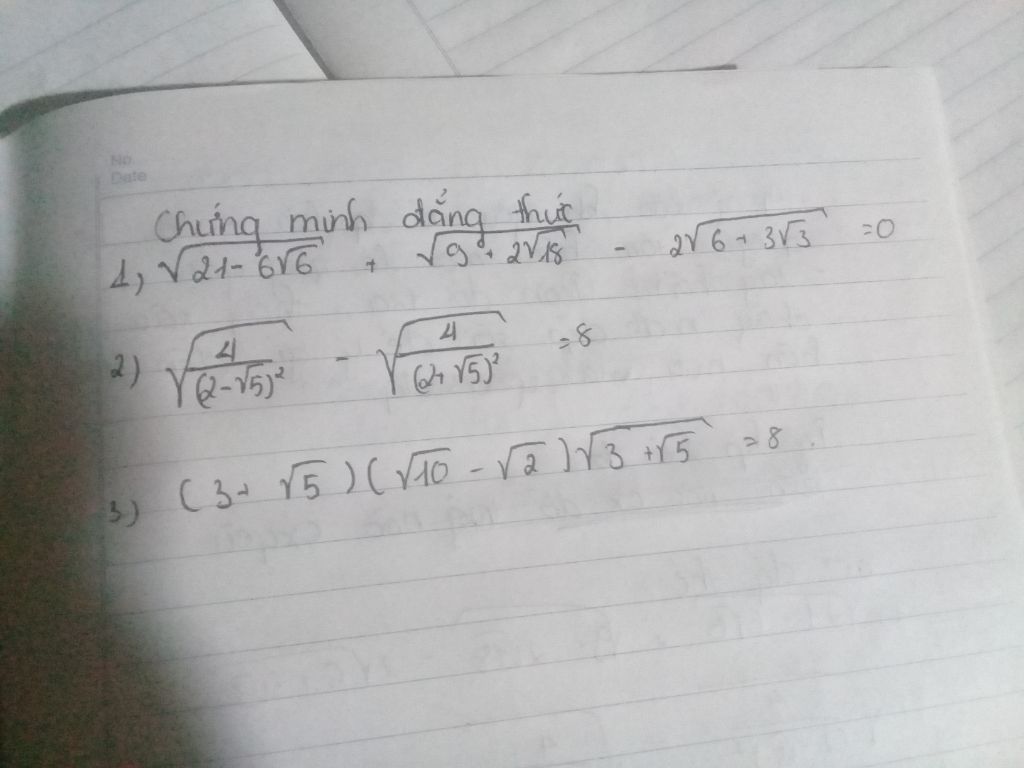 No
Date
Chứng minh đẳng thức
1, √(21 - 6√6) + √(9 + 2√18) - 2√(6 + 3√3) = 0
2) √(4/(2-√5)²) - √(4/(2+√5)²) = 8
3) (3+ √5)(√10 - √2)√(3 + √5) = 8.